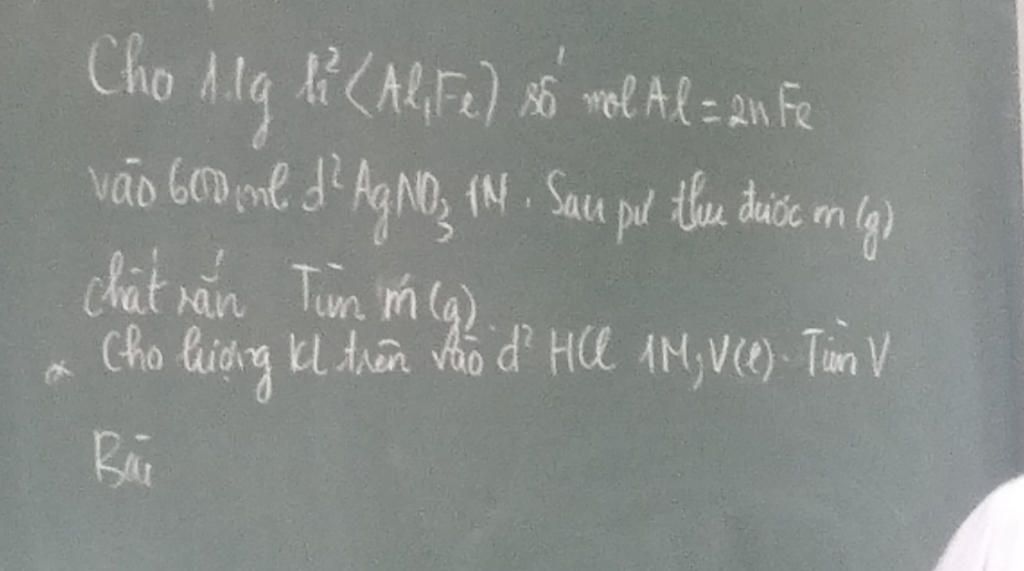 Cho 11g h² (Al, Fe) số mol Al = 2n Fe
vào 600 ml d² AgNO₃ 1M. Sau pư thu được m (g)
chất rắn Tìm m (g)
* Cho lượng Kl trên vào d² HCl 1M, V(l). Tìm V
Bài